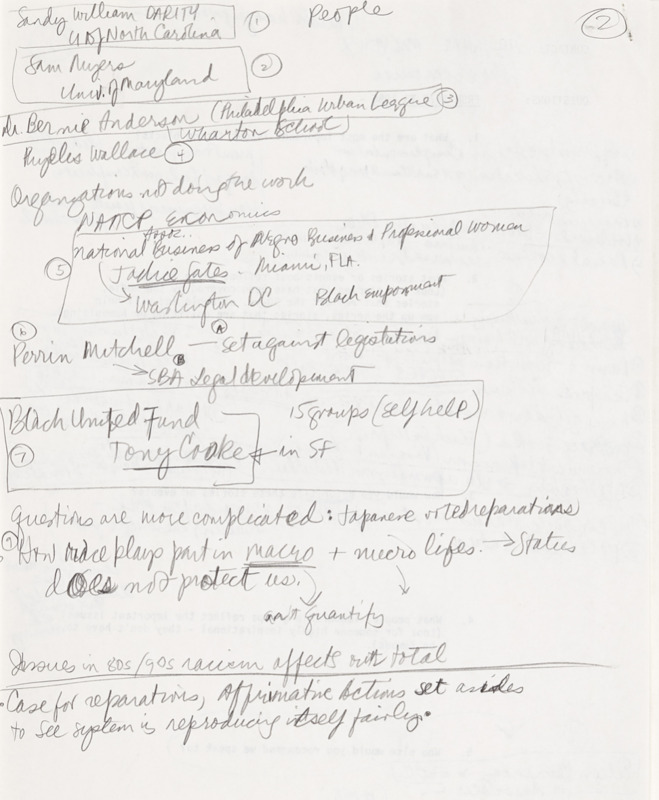 People
2
Sandy William DARITY 1
U of North Carolina
Sam Myers 2
Univ. of Maryland
Dr. Bernie Anderson (Philadelphia Urban League 3
Wharton School)
Phyllis Wallace 4
Organizations not doing the work
NAACP Economics
National Business of Negro Business & Professional Women
5 Gates - Miami, FLA.
Washington DC Black empowerment
6 A
Perrin Mitchell - set against legistations
B SBA Legal development
Black United Fund 15 groups (self help)
7 Tony Cooke in SF
Questions are more complicated: Japanese voted reparations
How race plays part in macro + micro lifes. → Status
does not protect us.
can't Quantify
Issues in 80s/90s racism affects total
Case for reparations, Affirmative Actions set asides
to see system is reproducing itself fairly.